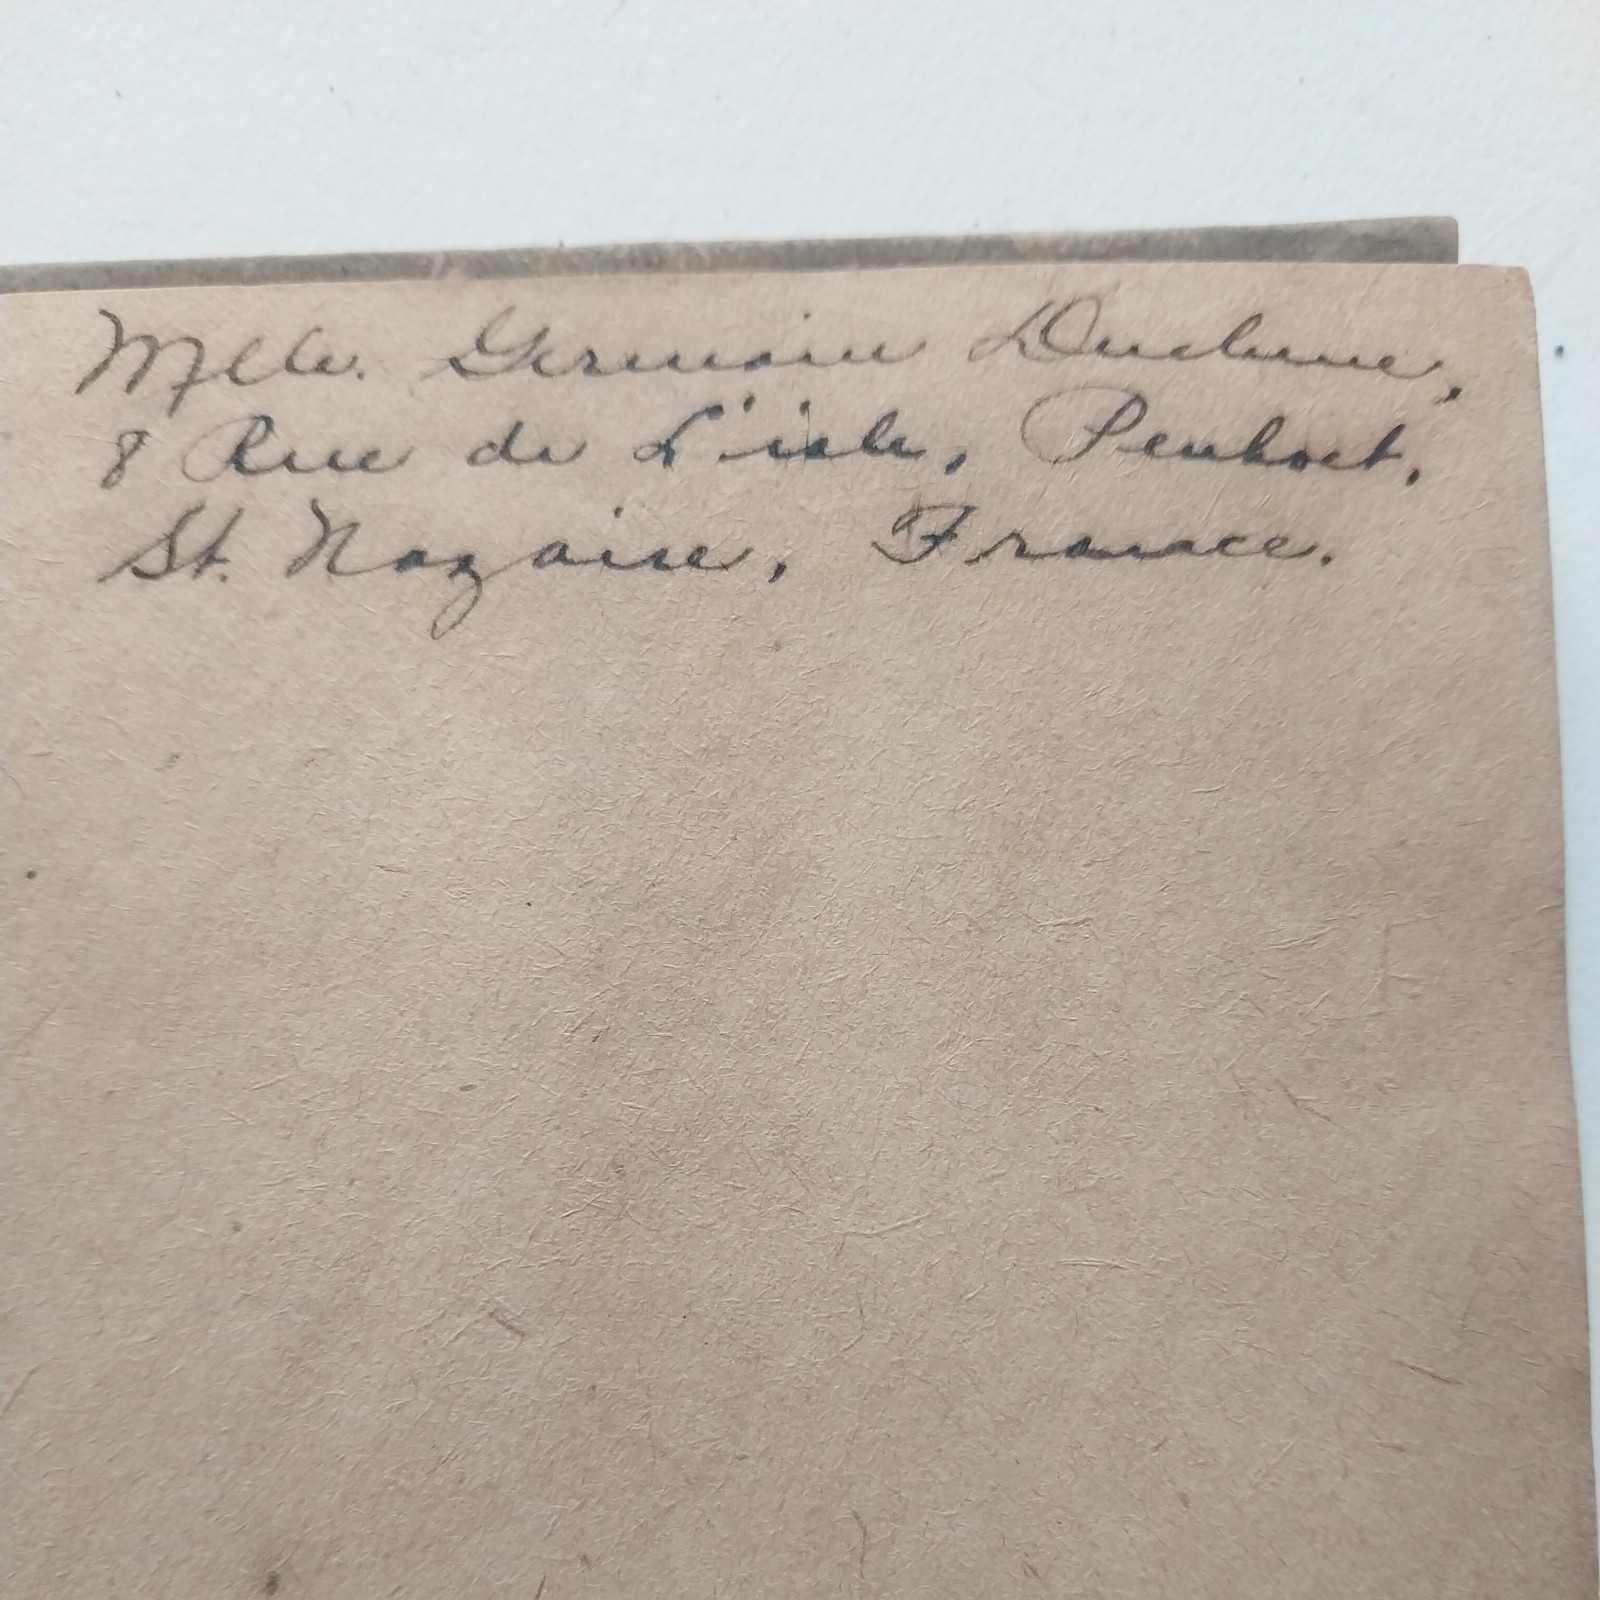 Mlle. Germain Duchene,
8 Rue de L'isle, Penhoet,
St. Nazaire, France.